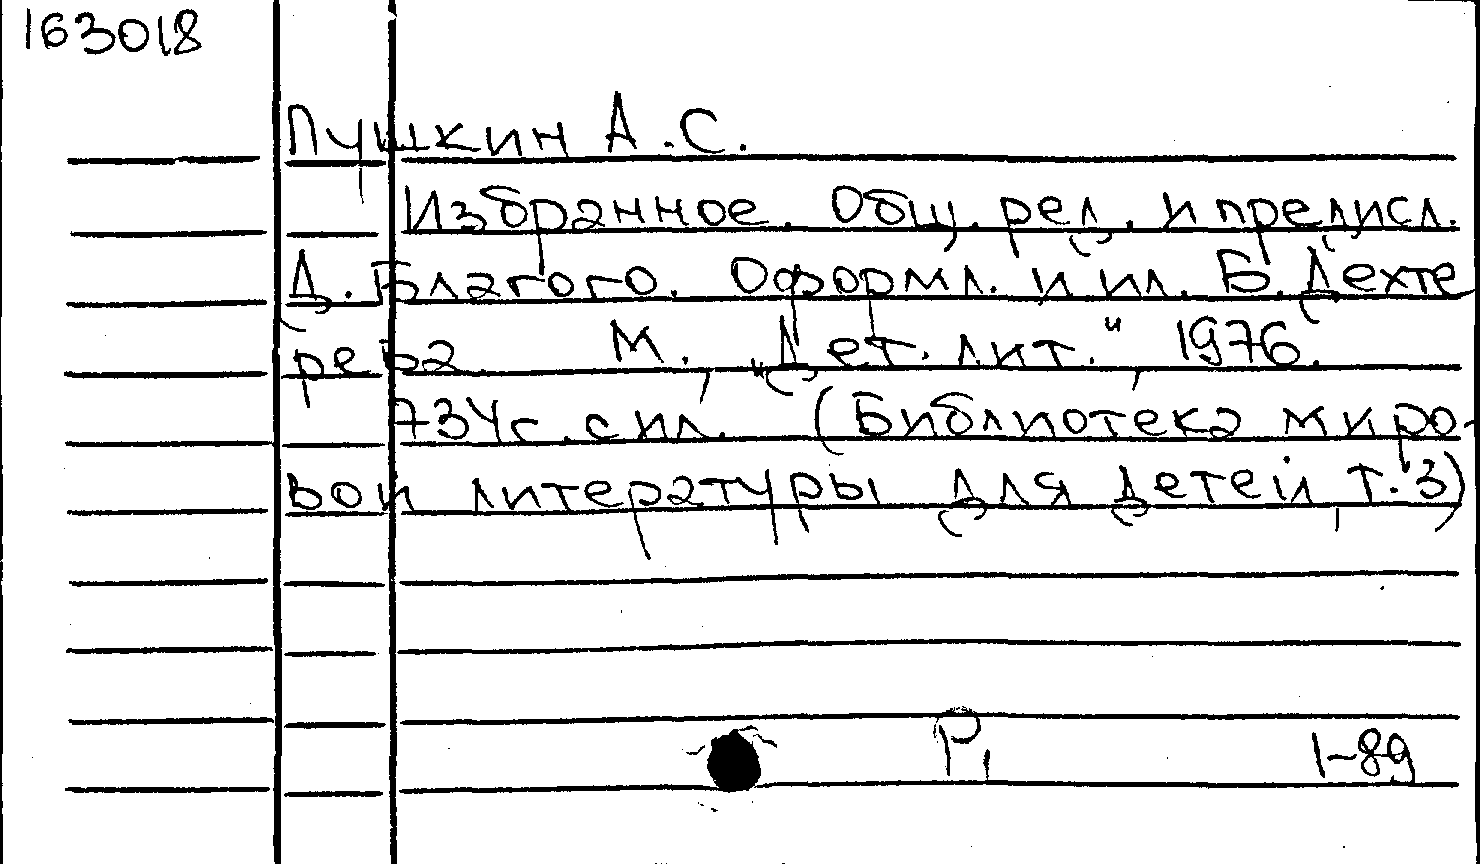 163018
Пушкин А.С.
Избранное. Общ. ред. и предисл.
Д. Благого. Оформл. и ил. Б. Дехте
рева. М., „Дет. лит.“, 1976.
734с. с ил. (Библиотека миро-
вой литературы для детей, т. 3)
Р1 1-89